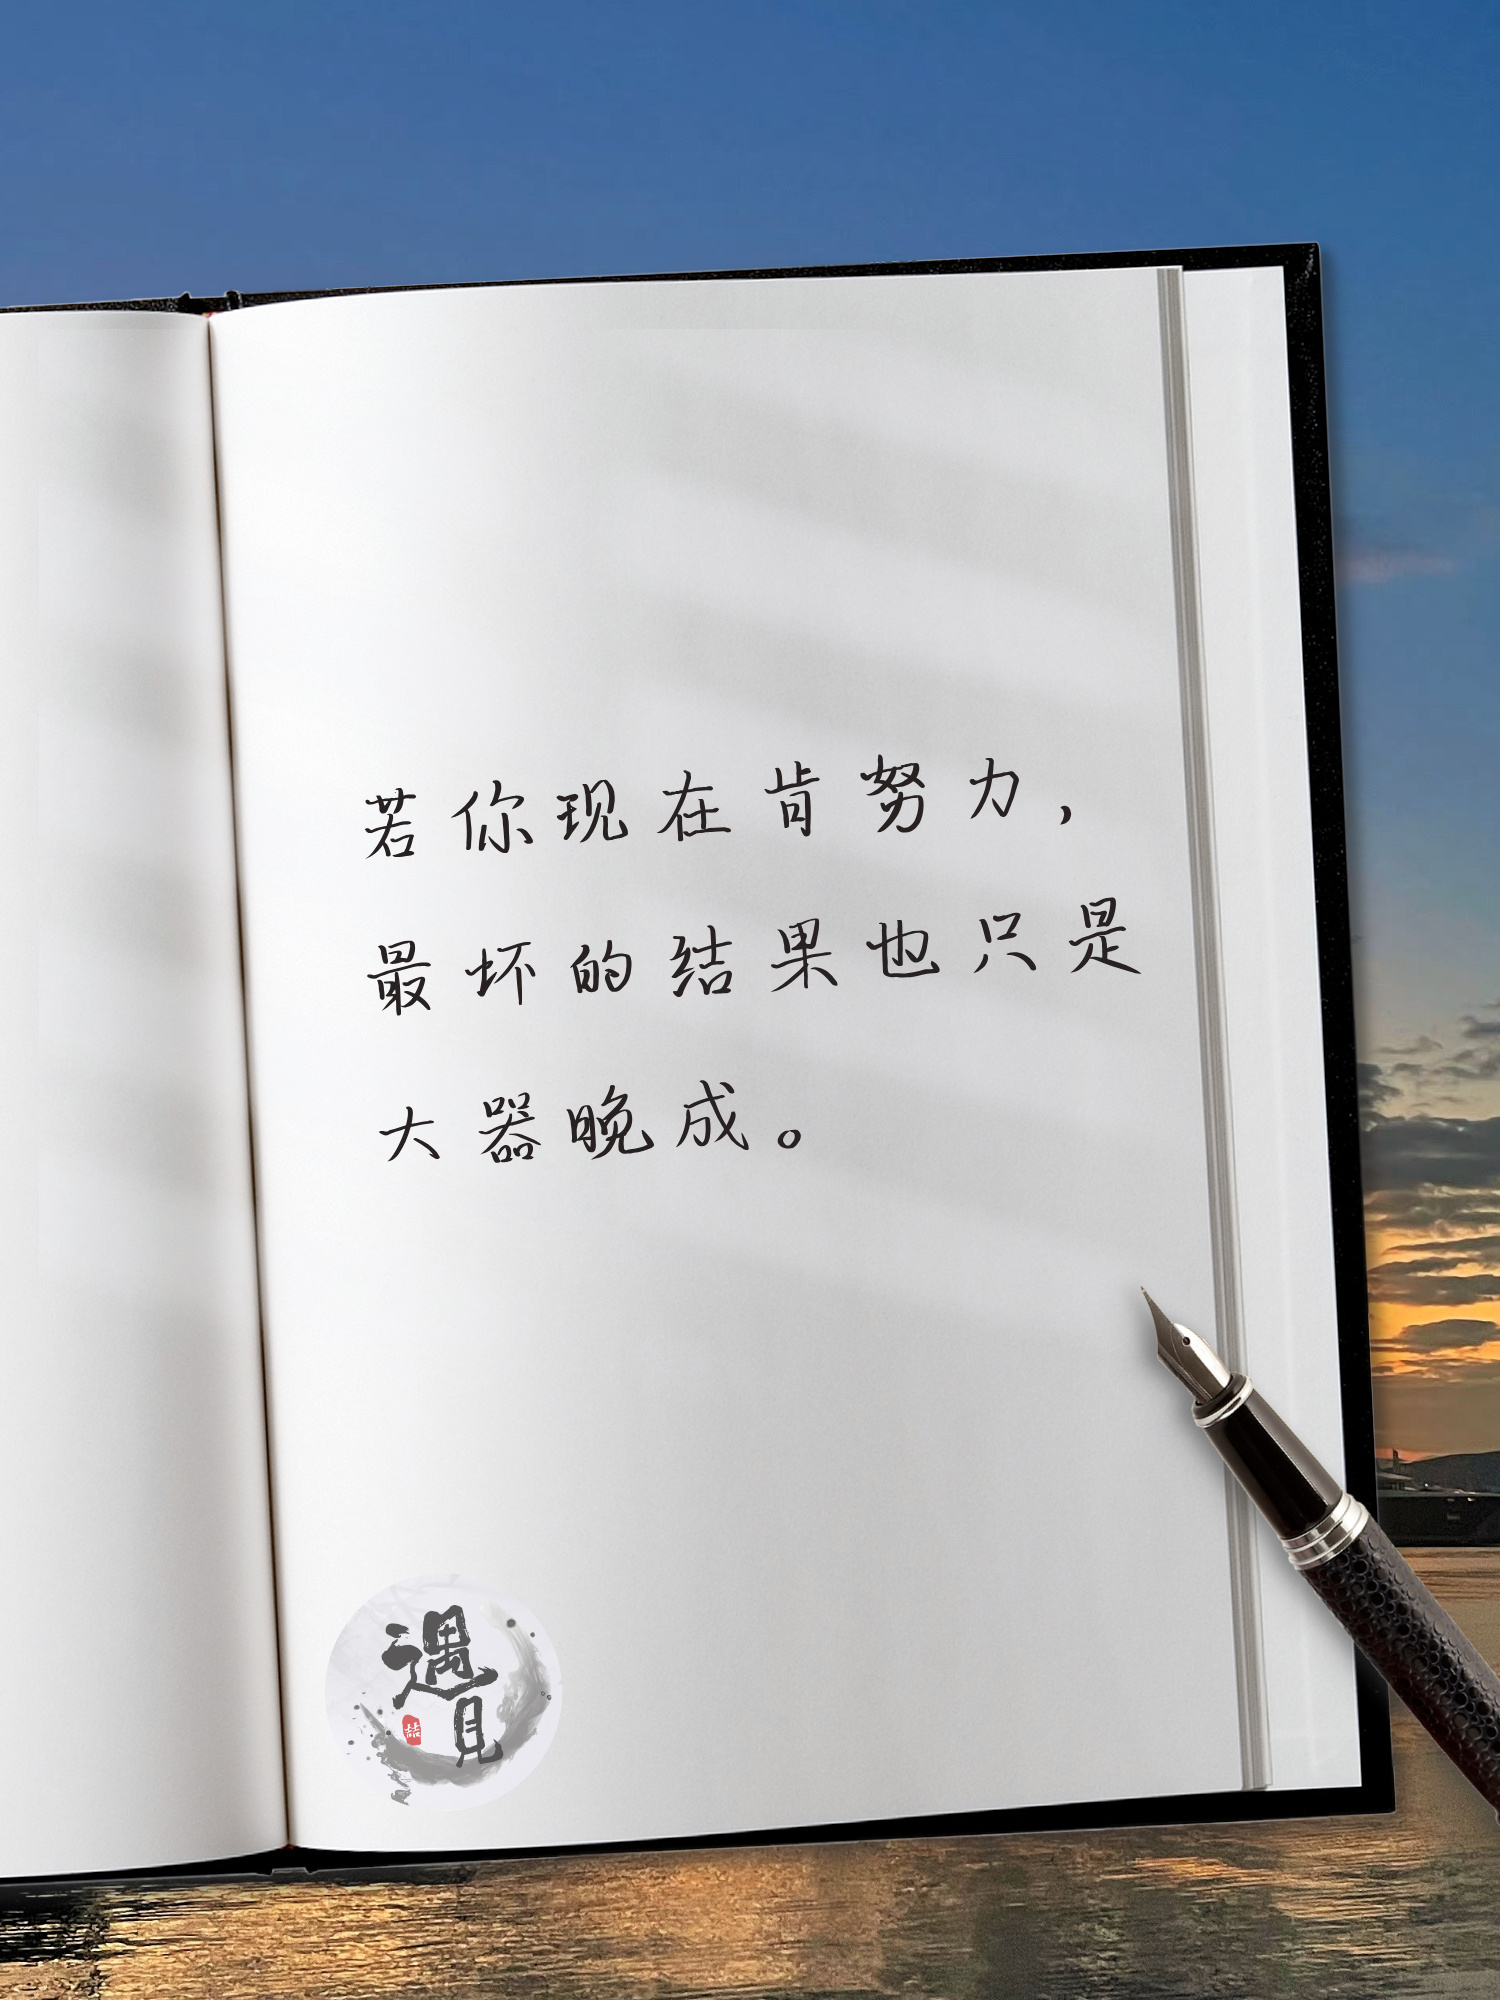 若你现在肯努力，
最坏的结果也只是
大器晚成。
遇
見
喆